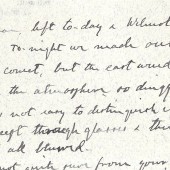 left to-day a Wilmot
To-night we made our
comet, but the east wind
the atmosphere so dingy
not easy to distinguish
except through glasses & this
all blurred.
not quite sure from your